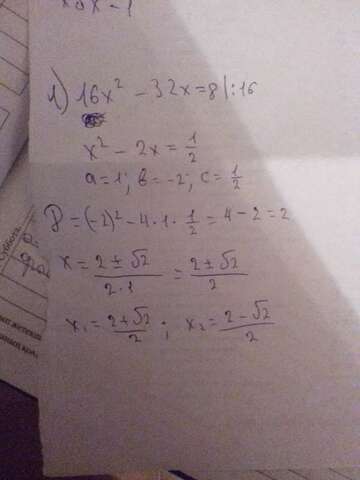 x - 1
1) 16x² - 32x = 8 |:16
x² - 2x = 1/2
a = 1; b = -2; c = 1/2
D = (-2)² - 4·1·1/2 = 4 - 2 = 2
x = (2 ± √2)/(2·1) = (2 ± √2)/2
x₁ = (2 + √2)/2 ; x₂ = (2 - √2)/2
Суббота